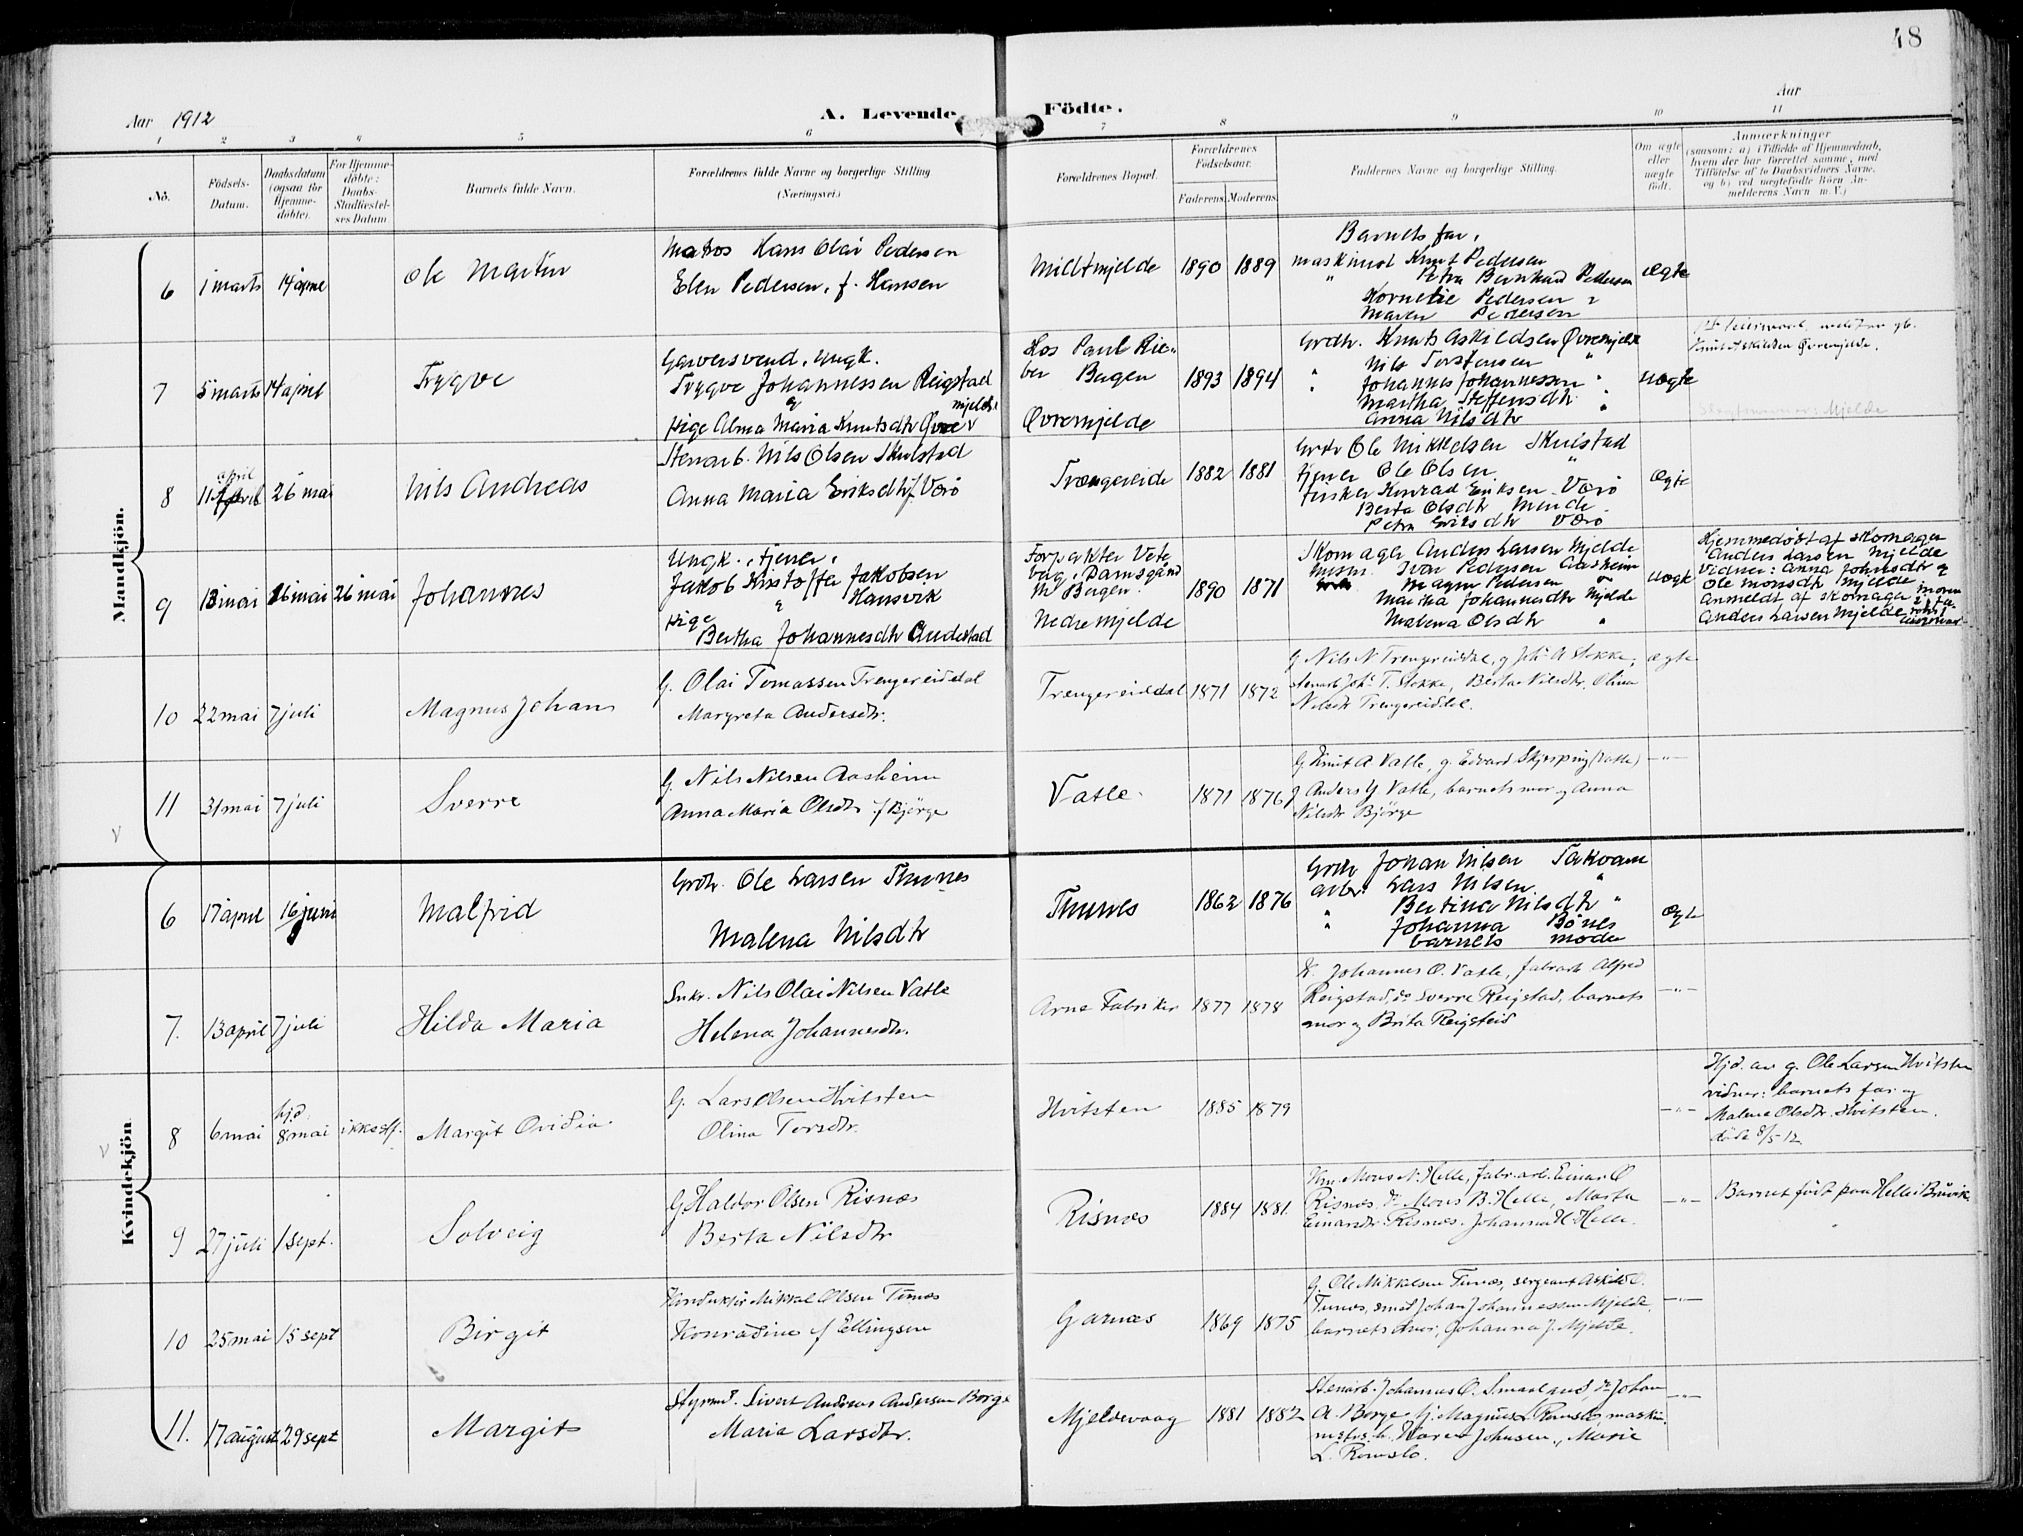 48
Aar 1912
A. Levende Födte.
Aar
1 2 3 4 5 6 7 8 9 10 11
Nö.
Födsels-Datum.
Daabsdatum (ogsaa for Hjemmedöbte).
For Hjemmedöbte: Daabs-Stadfæstelses Datum.
Barnets fulde Navn.
Forældrenes fulde Navne og borgerlige Stilling (Næringsvei)
Forældrenes Bopæl.
Forældrenes Födselsaar.
Faderens Moderens
Faddernes Navne og borgerlige Stilling.
Om ægte eller uægte födt.
Anmærkninger
(saasom: a) i Tilfælde af Hjemmedaab, hvem der har forrettet samme, med Tilföielse af to Daabsvidners Navne, og b) ved uægtefödte Börn Anmelderens Navn m. V.)
Mandkjön.
6 1 marts 14 april Ole Martin
Matros Hans Olai Pedersen
Elen Pedersen, f. Hansen
Midtmjelde 1890 1889
Barnets far,
maskinist Knut Pedersen
" Petra Bernhard Pedersen
Kornelie Pedersen
Maren Pedersen
Ægte
7 5 marts 14 april Trygve
Garversvend, Ungk.
Trygve Johannessen Reigstad
Pige Alma Maria Knutsdtr Øvremjelde
Hos Paul Rieber Bergen
Øvremjelde
1893 1894
Grdbr. Knut Askildsen Øvremjelde
Nils Torstensen "
Johannes Johannessen "
Martha Steffensdtr "
Anna Nilsdtr "
Uægte
Knut Askildsen Øvremjelde.
8 11 april 26 mai Nils Andreas
Stenarb. Nils Olsen Skulstad
Anna Maria Eriksdtr f. Varö
Trængereide 1882 1881
Grdbr Ole Mikkelsen Skulstad
tjener Ole Olsen "
fisker Konrad Eriksen Varö
Berta Olsdtr Mende
Petra Eriksdtr Varö
Ægte
9 13 mai 26 mai 26 mai Johannes
Ungk., tjener,
Jakob Kristoffer Jakobsen Hansvik
pige
Bertha Johannesdtr Andestad
Forpakter
Damsgård
Bergen
Nedre Mjelde
1890 1871
Skomager Anders Larsen Mjelde
Husm. Ivar Pedersen Aasheim
Magne Pedersen
Martha Johannesdtr Mjelde
Malena Olsdtr "
Uægte
Hjemmedöbt af skomager
Anders Larsen Mjelde
Vidner: Anna Johnsdtr og
Ole Monsdtr Mjelde
Anmeldt af skomager
Anders Larsen Mjelde
10 22 mai 7 juli Magnus Johan
G. Olai Tomassen Trengereiddal
Margreta Andersdtr.
Trængereiddal 1871 1872
G Nils N Trengereiddal, g Joh A Stokke,
stenarb Joh T. Stokke, Berta Nilsdtr, Olina
Nilsdtr Trengereiddal.
ægte
11 31 mai 7 juli Sverre
G. Nils Nilsen Aasheim
Anna Maria Olsdtr f Björge
Vatle 1871 1876
G Knut A Vatle, g. Edvard Skjerping (Vatle)
G Anders Y Vatle, barnets mor og Anna
Nilsdtr Björge
—"—
V
Kvindekjön
6 17 april 16 juni Malfrid
Grdbr. Ole Larsen Tunes
Malena Nilsdtr
Tunes 1862 1876
Grdbr Johan Nilsen Takvam
arbr. Lars Nilsen "
" Bertina Nilsdtr "
" Johanna Bönes
barnets moder
Ægte
7. 13 april 7 juli Hilda Maria
Snkr. Nils Olai Nilsen Vatle
Helena Johannesdtr.
Arne Fabriker 1877 1878
K. Johannes O. Vatle, fabrarb Alfred
Reigstad, do Sverre Reigstad, barnets
mor og Brita Reigstad
—"—
V
8 6 mai hjd. 8 mai ikke stf. Margit Ovidia
G. Lars Olsen Hvitsten
Olina Torsdtr.
Hvitsten 1885 1879
—"—
Hjd. av g. Ole Larsen Hvitsten
vidner: barnets far og
Malene Olsdtr. Hvitsten.
död 8/5 12
9 27 juli 1 sept. Solveig
G Haldor Olsen Risnes
Berta Nilsdtr
Risnes 1884 1881
Km. Mons N. Helle, fabr.arb. Einar O
Risnes, do Mons B. Helle, Marta
Einarsdtr Risnes. Johanna H. Helle.
—"—
Barnet födt paa Helle i Bruvik
10 25 mai 15 sept Birgit
Konduktör Mikkel Olsen Tunes
Konradine f Ellingsen
Garnes 1869 1875
G. Ole Mikkelsen Tunes, sergeant Askild O.
Tunes, smed Johan Johannessen Mjelde,
barnets mor, Johanna J. Mjelde.
—"—
11. 17 august 29 sept Margit
Styrmd. Sivert Andreas Andersen Borge
Maria Larsdtr.
Mjeldevaag 1881 1882
Stenarb. Johannes O. Smaaland, do Johan
A. Borge, tj. Magnus L. Romslo, maskin
Karen Johnsen, Marie
L. Romslo.
—"—